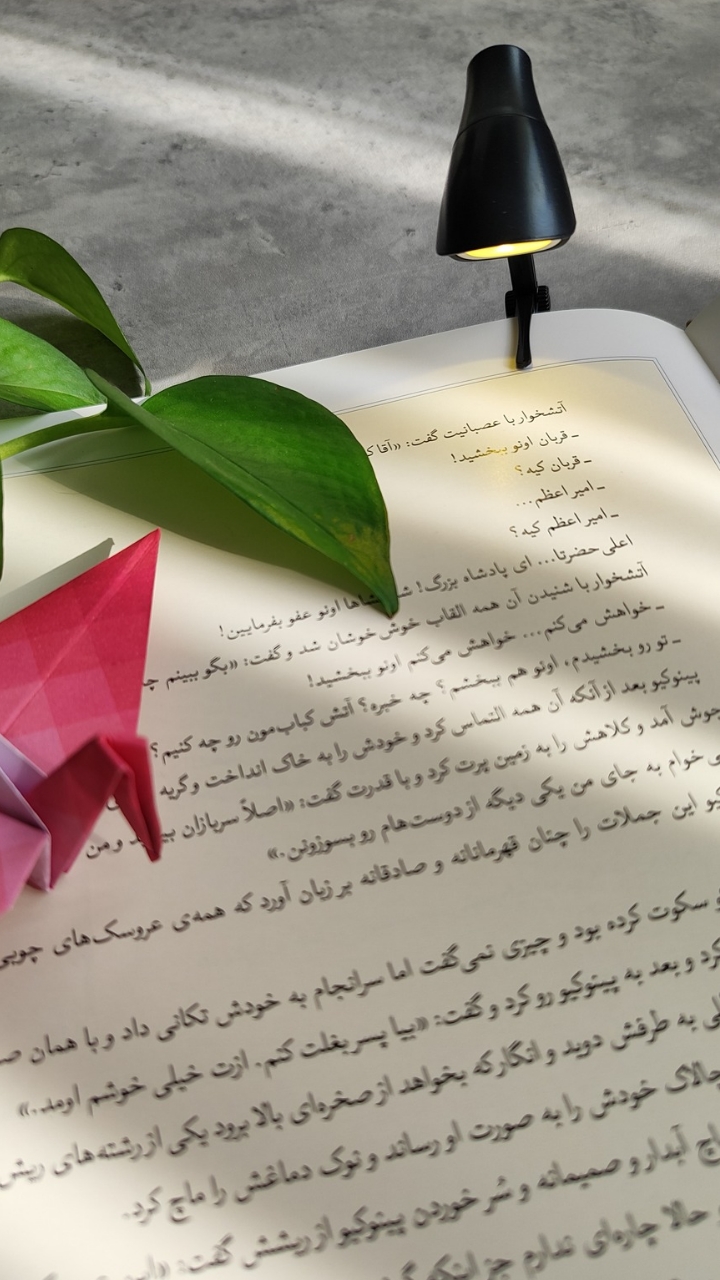 آتشخوار با عصبانیت گفت: «آقا
ـ قربان اونو ببخشید!
ـ قربان کیه؟
ـ امیر اعظم...
ـ امیر اعظم کیه؟
اعلی حضرتا... ای پادشاه بزرگ! اونو عفو بفرمایین!
آتشخوار با شنیدن آن همه القاب خوش‌خوشان شد و گفت: «بگو ببینم
ـ خواهش می‌کنم... خواهش می‌کنم اونو ببخشید!
ـ تو رو بخشیدم، اونو هم ببخشم؟ چه خبره؟ آتش کباب‌مون رو چه کنیم؟
پینوکیو بعد از آنکه آن همه التماس کرد و خودش را به خاک انداخت و گریه
جوش آمد و کلاهش را به زمین پرت کرد و با قدرت گفت: «اصلاً سربازان و من
خوام به جای من یکی دیگه از دوست‌هام رو بسوزونن.»
این جملات را چنان قهرمانانه و صادقانه بر زبان آورد که همه‌ی عروسک‌های چوبی
سکوت کرده بود و چیزی نمی‌گفت اما سرانجام به خودش تکانی داد و با همان
کرد و بعد به پینوکیو رو کرد و گفت: «بیا پسر بغلت کنم. ازت خیلی خوشم اومد..»
به طرفش دوید و انگار که بخواهد از صخره‌ای بالا برود یکی از رشته‌های ریش
چالاک خودش را به صورت او رساند و نوک دماغش را ماچ کرد.
آبدار و صمیمانه و سُر خوردن پینوکیو از ریشش گفت:
حالا چاره‌ای ندارم جز اینکه